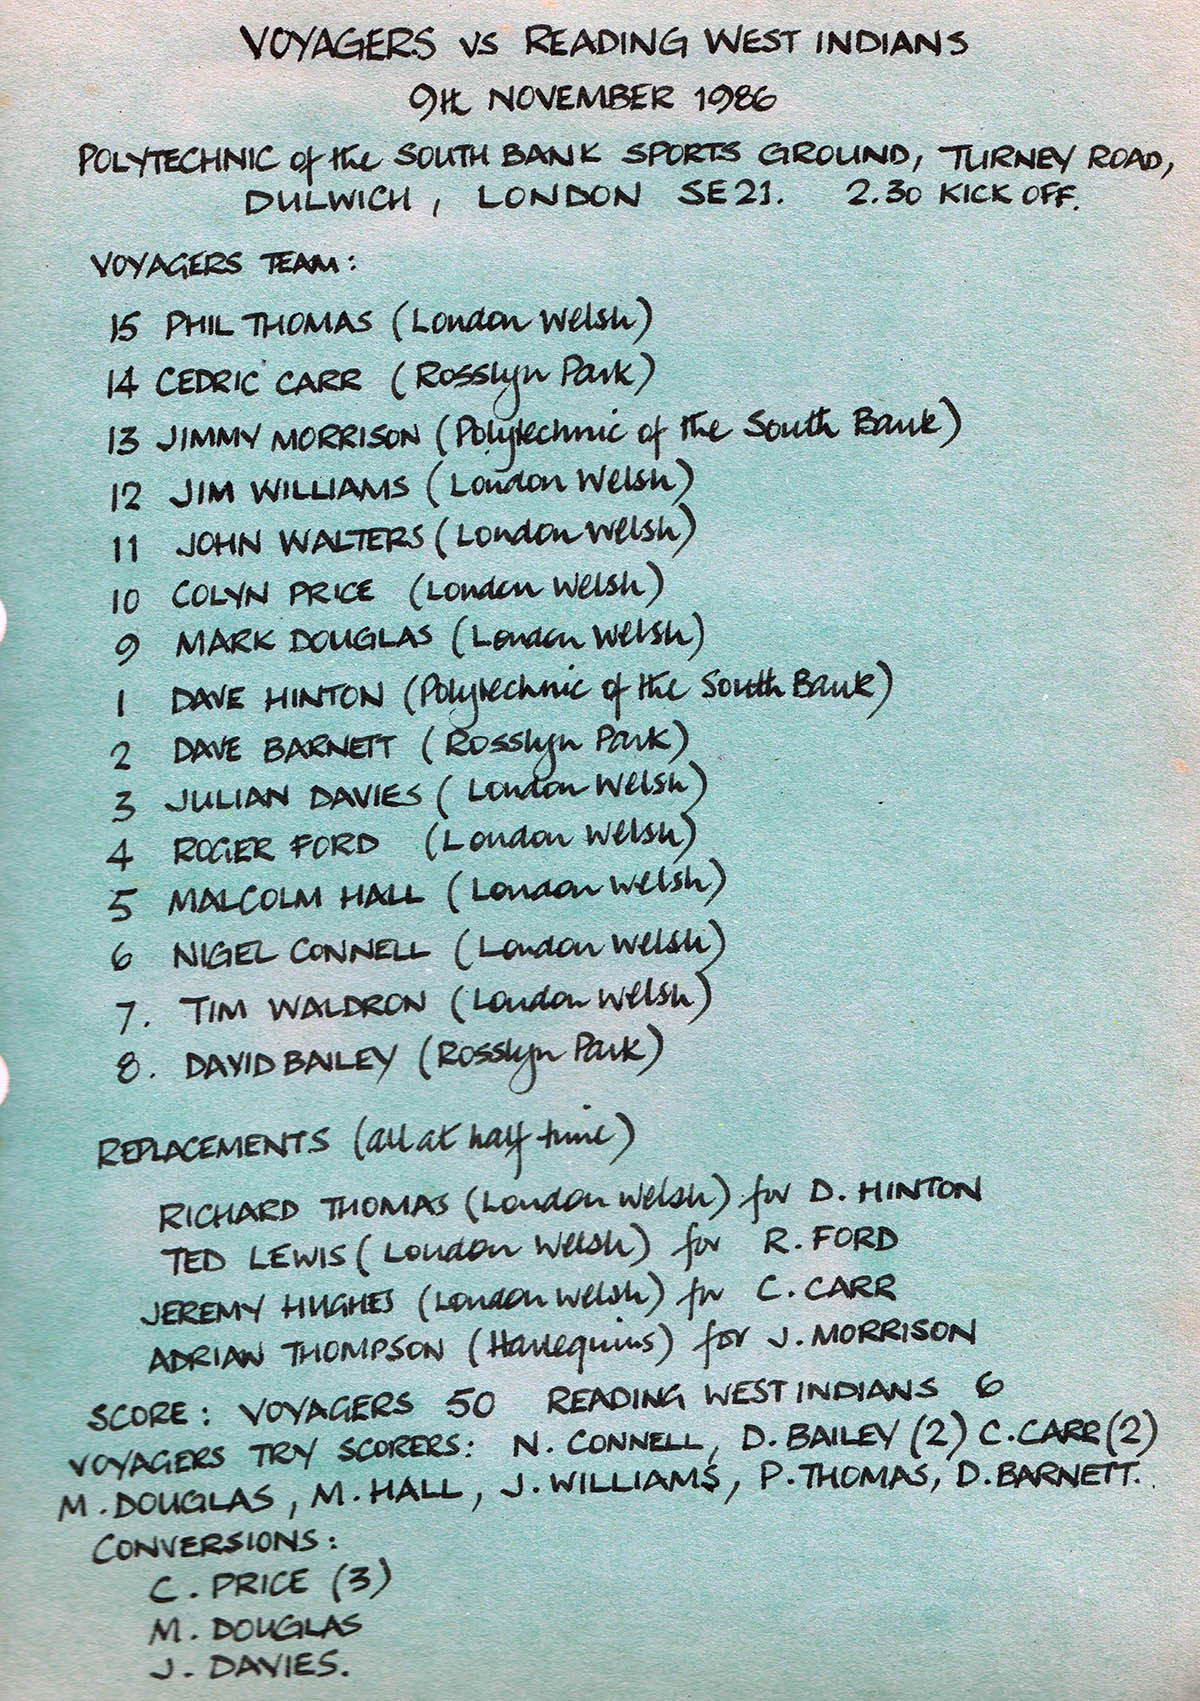 VOYAGERS VS READING WEST INDIANS
9th NOVEMBER 1986
POLYTECHNIC of the SOUTH BANK SPORTS GROUND, TURNEY ROAD,
DULWICH, LONDON SE21. 2.30 KICK OFF.
VOYAGERS TEAM:
15 PHIL THOMAS (London Welsh)
14 CEDRIC CARR (Rosslyn Park)
13 JIMMY MORRISON (Polytechnic of the South Bank)
12 JIM WILLIAMS (London Welsh)
11 JOHN WALTERS (London Welsh)
10 COLYN PRICE (London Welsh)
9 MARK DOUGLAS (London Welsh)
1 DAVE HINTON (Polytechnic of the South Bank)
2 DAVE BARNETT (Rosslyn Park)
3 JULIAN DAVIES (London Welsh)
4 ROGER FORD (London Welsh)
5 MALCOLM HALL (London Welsh)
6 NIGEL CONNELL (London Welsh)
7. TIM WALDRON (London Welsh)
8. DAVID BAILEY (Rosslyn Park)
REPLACEMENTS (all at half time)
RICHARD THOMAS (London Welsh) for D. HINTON
TED LEWIS (London Welsh) for R. FORD
JEREMY HUGHES (London Welsh) for C. CARR
ADRIAN THOMPSON (Harlequins) for J. MORRISON
SCORE: VOYAGERS 50 READING WEST INDIANS 6
VOYAGERS TRY SCORERS: N. CONNELL, D. BAILEY (2) C. CARR (2)
M. DOUGLAS, M. HALL, J. WILLIAMS, P. THOMAS, D. BARNETT.
CONVERSIONS:
C. PRICE (3)
M. DOUGLAS
J. DAVIES.